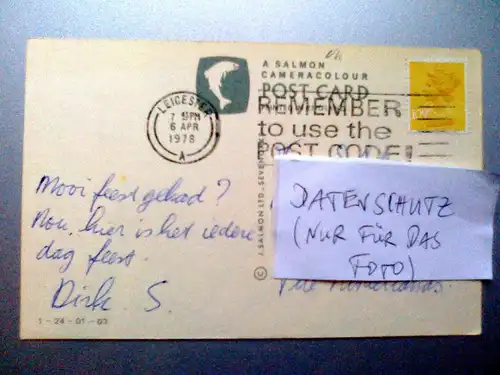 A SALMON
CAMERACOLOUR
POST CARD
LEICESTER
7 PM
6 APR
1978
A
REMEMBER
to use the
POST CODE!
© J. SALMON LTD · SEVENOAKS
Mooi feest gehad?
Nou, hier is het iedere
dag feest.
Dirk S.
1 - 24 - 01 - 03
DATENSCHUTZ
(NUR FÜR DAS
FOTO)